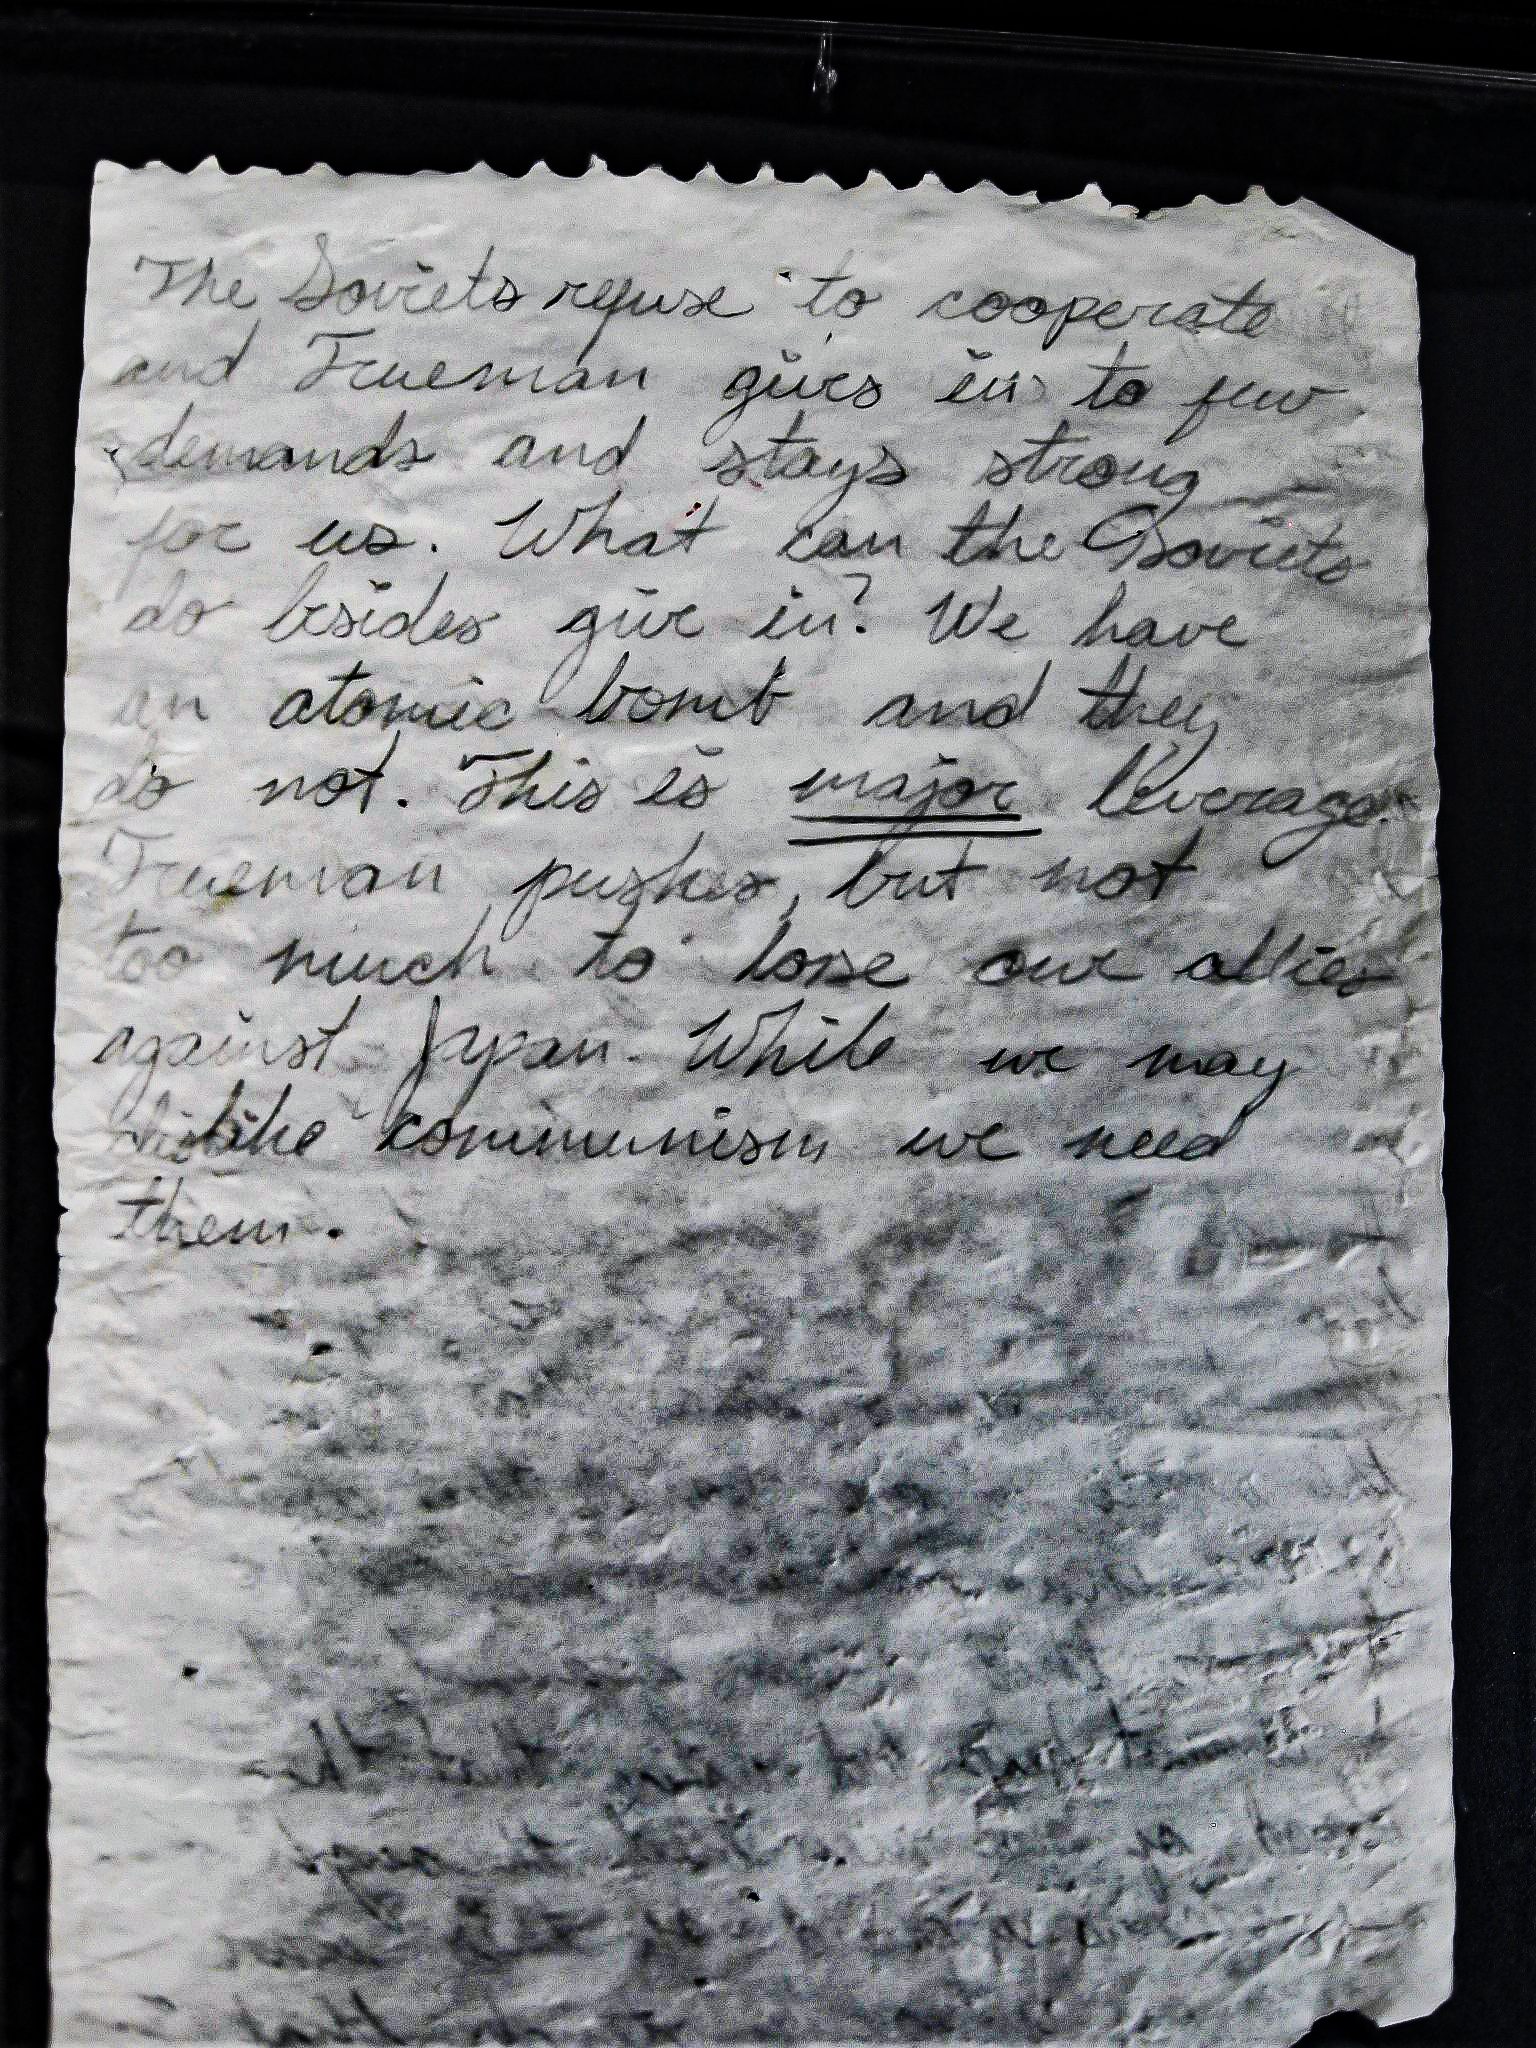 The Soviets refuse to cooperate
and Trueman gives in to few
demands and stays strong
for us. What can the Soviets
do besides give in? We have
an atomic bomb and they
do not. This is major leverage.
Trueman pushes, but not
too much to lose our allies
against Japan. While we may
dislike communism we need
them.